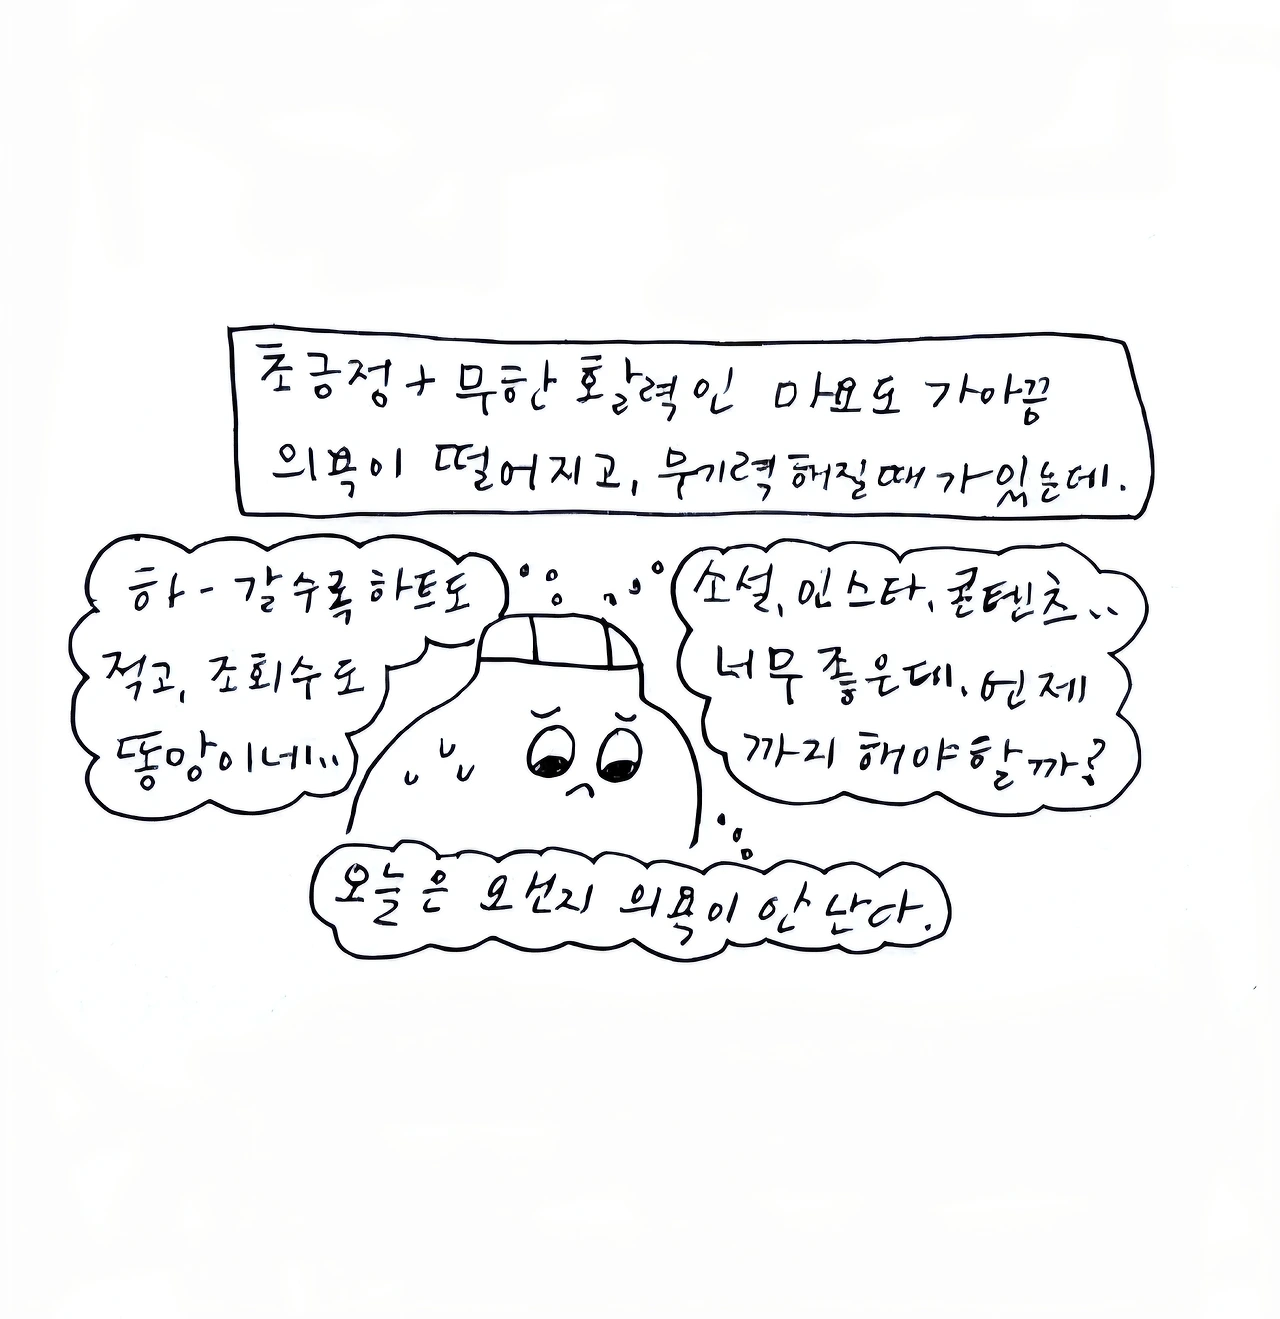 초긍정 + 무한 활력인 마요도 가아끔
의욕이 떨어지고, 무기력해질때가있는데.
하- 갈수록 하트도
적고, 조회수도
똥망이네..
소설, 인스타, 콘텐츠..
너무 좋은데, 언제
까지 해야할까?
오늘은 오건지 의욕이 안난다.